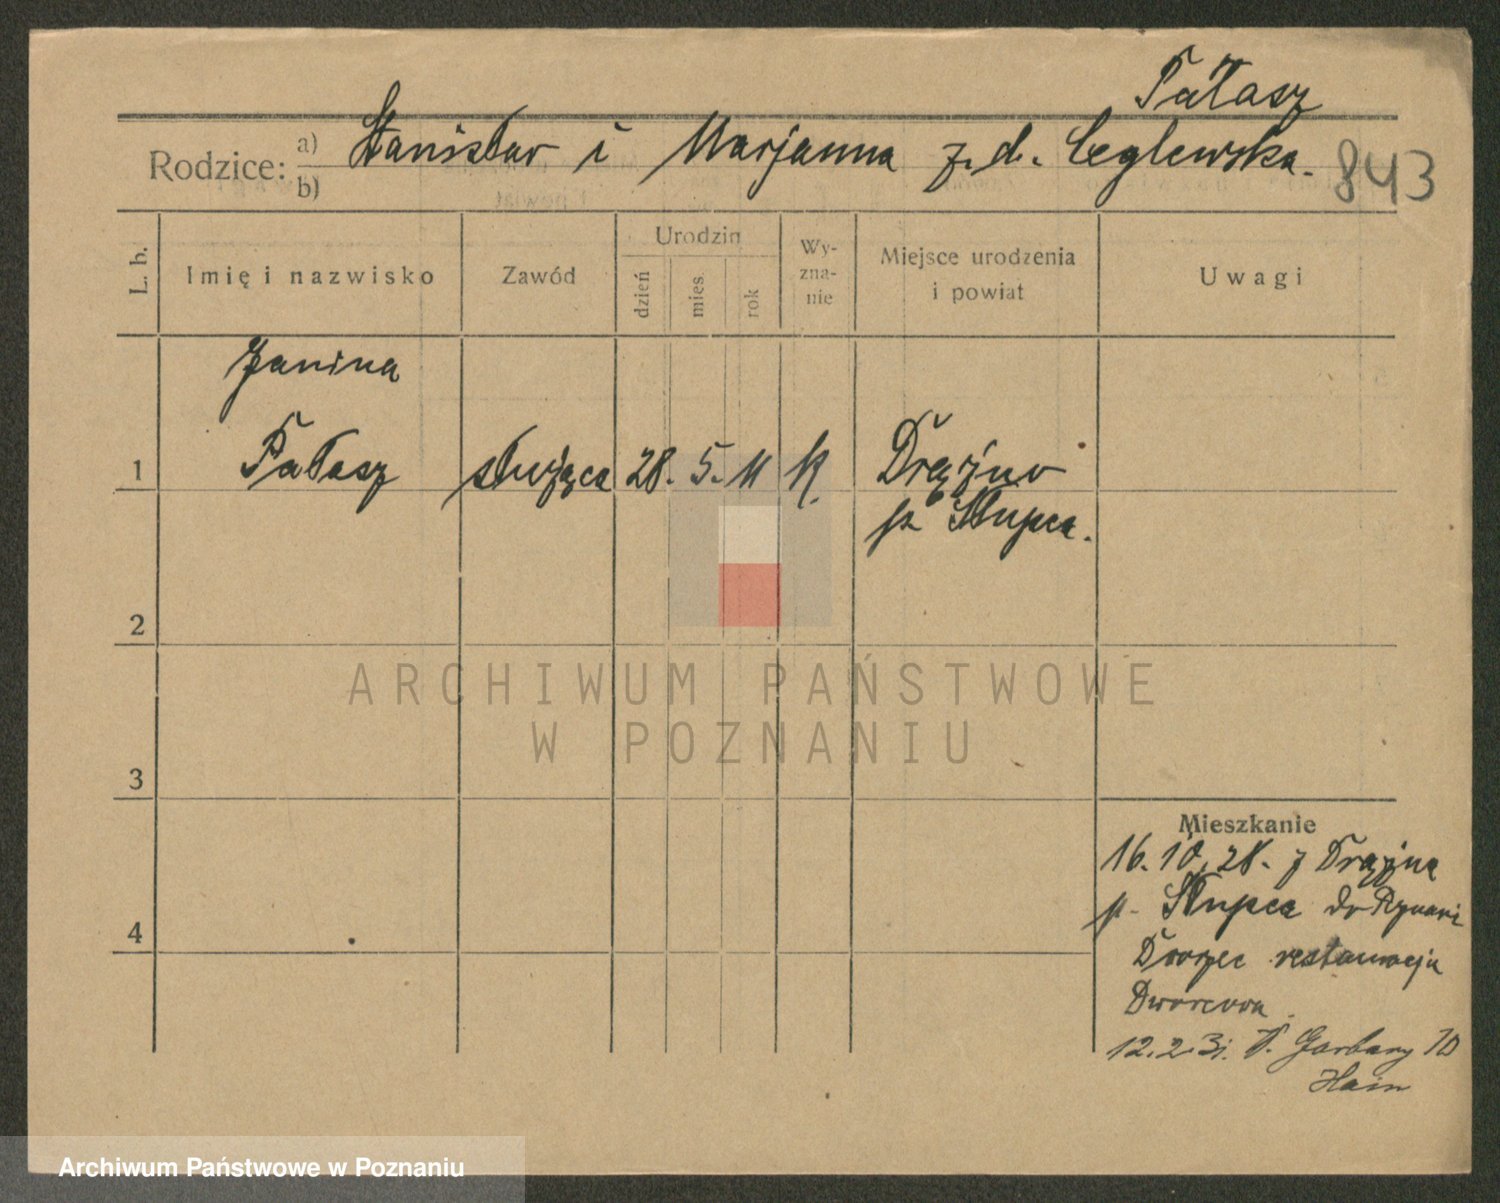 Pałasz
Rodzice: a) Stanisław i Marjanna z. d. Ceglewska.
b)
843
L. b.
Imię i nazwisko
Zawód
Urodzin
dzień
mies.
rok
Wy-
zna-
nie
Miejsce urodzenia
i powiat
Uwagi
Janina
1 Pałasz służąca 28. 5. 11 K. Drążno
p. Słupca.
2
3
4
Mieszkanie
16.10.28. z Drążna
p. Słupca do Poznani
Dworzec restauracja
Dworcowa
12.2.31. P. Garbary 70
Hain
ARCHIWUM PAŃSTWOWE
W POZNANIU
Archiwum Państwowe w Poznaniu